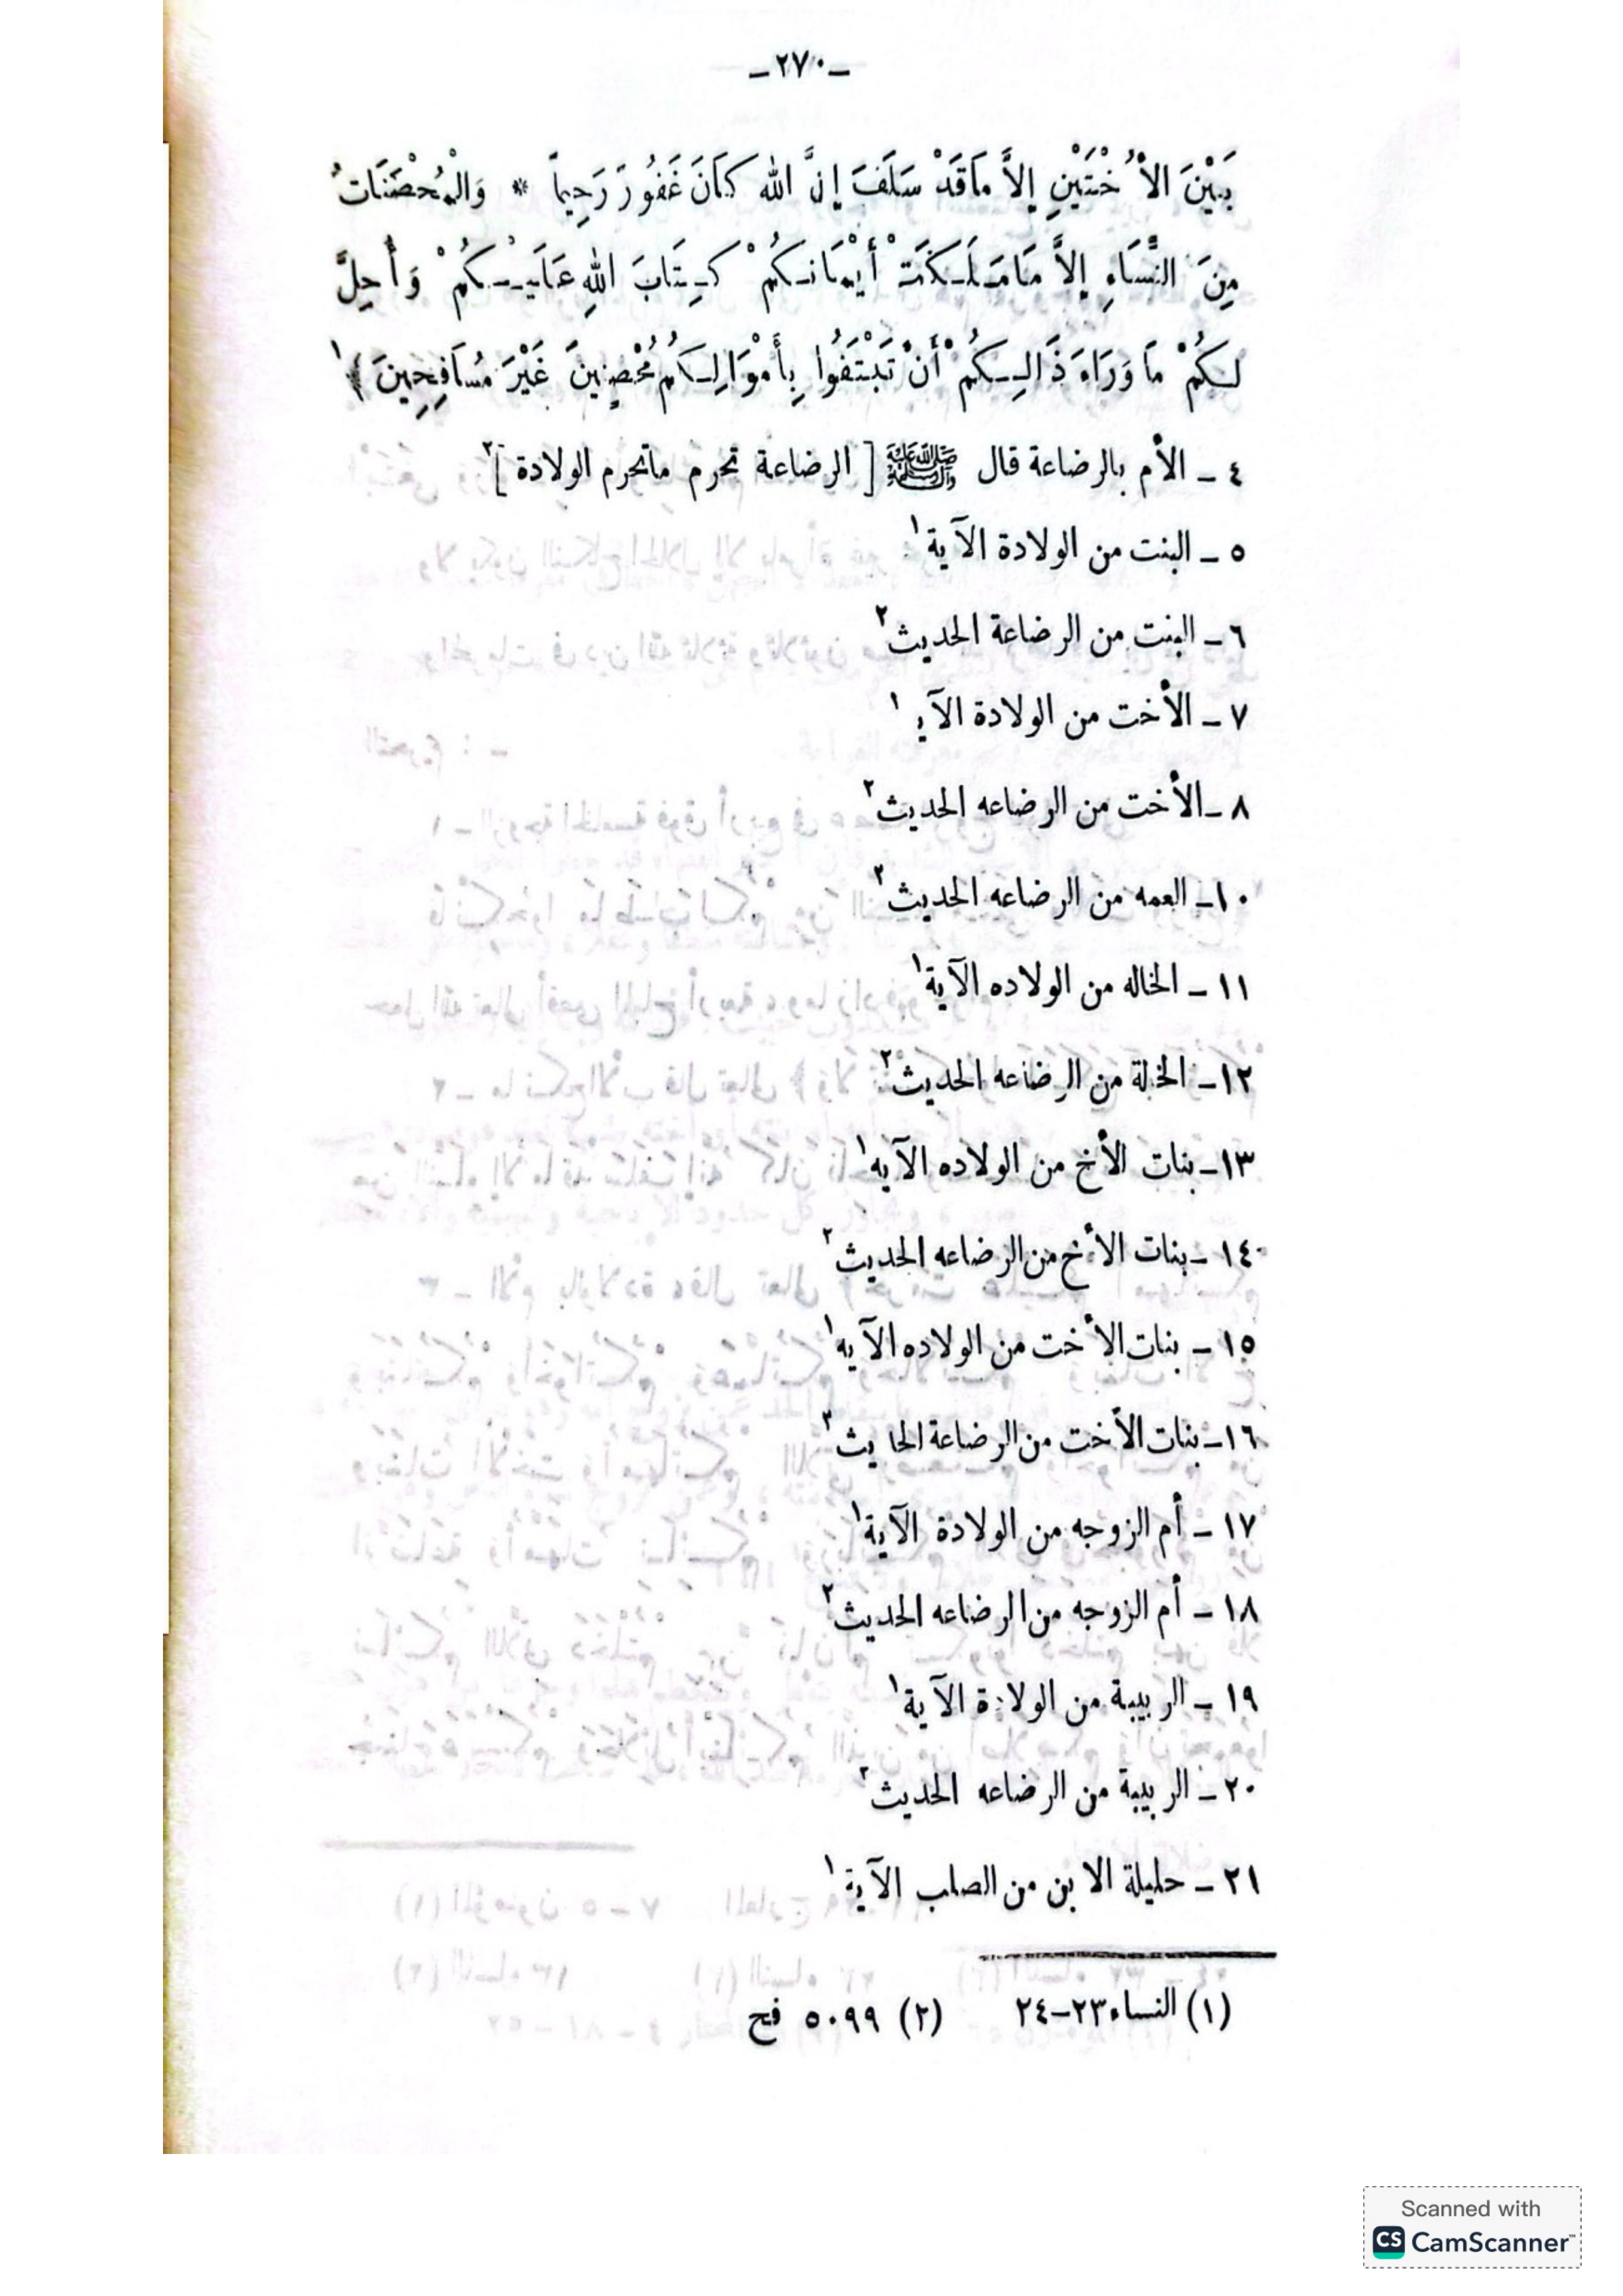 -٢٧٠-
بَيْنَ الْأُخْتَيْنِ إِلاَّ مَاقَدْ سَلَفَ إِنَّ اللهَ كَانَ غَفُورَ رَحِيماً * وَالْمُحْصَنَاتُ
مِنَ النِّسَاءِ إِلاَّ مَامَلَكَتْ أَيْمَانُكُمْ كِتَابَ اللهِ عَلَيْكُمْ وَأُحِلَّ
لَكُمْ مَا وَرَاءَ ذَالِكُمْ أَنْ تَبْتَغُوا بِأَمْوَالِكُمْ مُحْصِنِينَ غَيْرَ مُسَافِحِينَ ﴾ ١
٤ - الأم بالرضاعة قال ﷺ [ الرضاعة تحرم ماتحرم الولادة ] ٢
٥ - البنت من الولادة الآية ١
٦ - البنت من الرضاعة الحديث ٢
٧ - الأخت من الولادة الآية ١
٨ - الأخت من الرضاعه الحديث ٢
١٠ - العمه من الرضاعه الحديث ٢
١١ - الخاله من الولاده الآية ١
١٢ - الخالة من الرضاعه الحديث ٢
١٣ - بنات الأخ من الولاده الآيه ١
١٤ - بنات الأخ من الرضاعه الحديث ٢
١٥ - بنات الأخت من الولاده الآيه ١
١٦ - بنات الأخت من الرضاعة الحديث ٢
١٧ - أم الزوجه من الولادة الآية ١
١٨ - أم الزوجه من الرضاعه الحديث ٢
١٩ - الربيبة من الولادة الآية ١
٢٠ - الربيبة من الرضاعه الحديث ٢
٢١ - حليلة الابن من الصلب الآية ١
(١) النساء ٢٣-٢٤ (٢) ٥٠٩٩ فتح
Scanned with
CS CamScanner